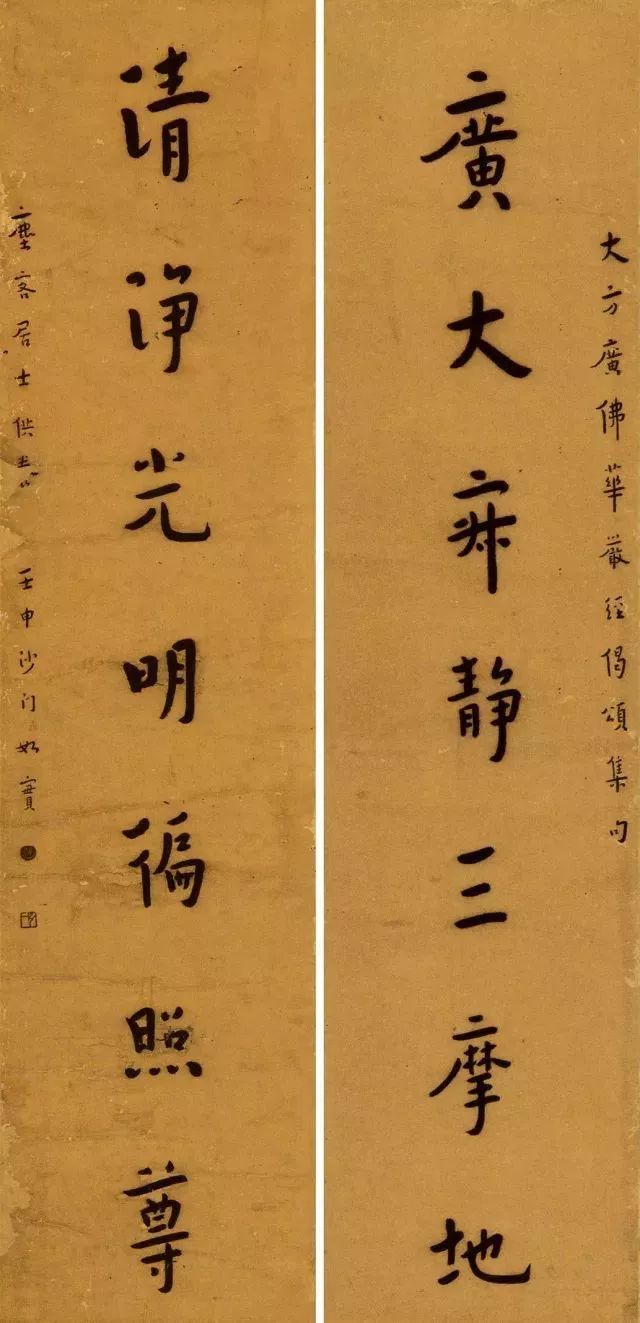 大方廣佛華嚴經偈頌集句
廣大寂静三摩地
清浄光明徧照尊
塵客居士供養 壬申沙门如實